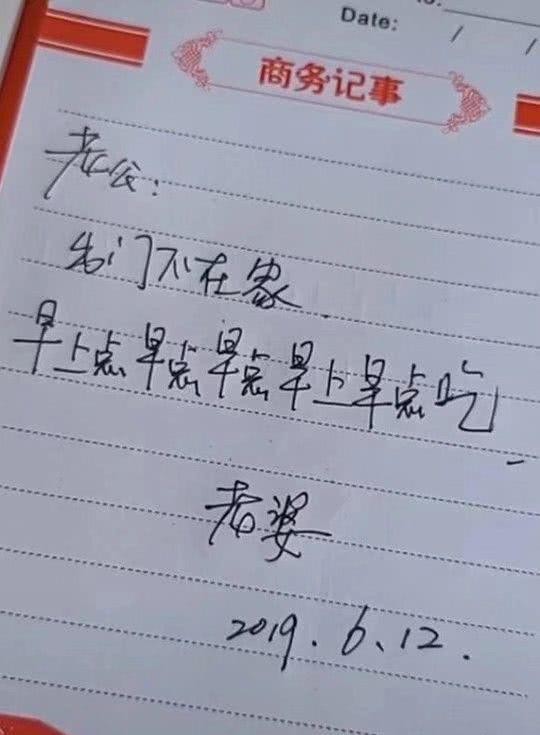 Date: / /
商务记事
老公：
出门不在家
早上点早点早点早上早点吃
老婆
2019.6、12.